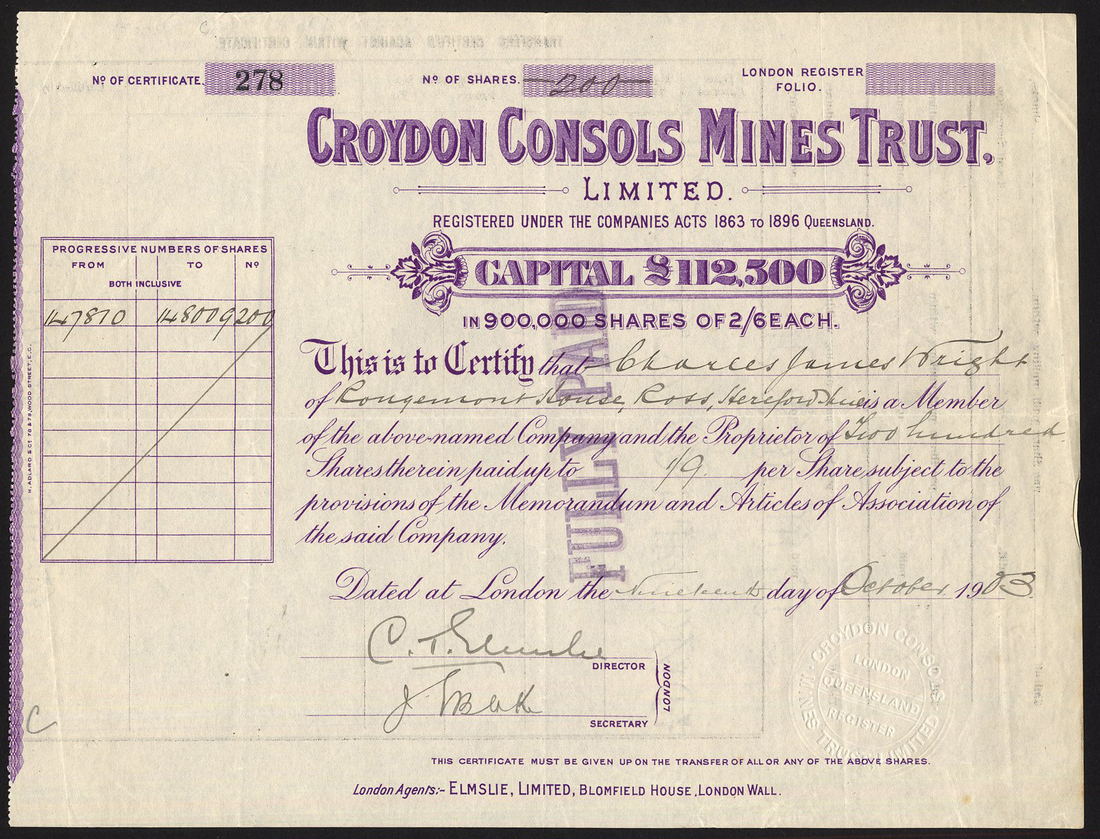 TRANSFERS CERTIFIED AGAINST WITHIN CERTIFICATE
Nº OF CERTIFICATE. 278
Nº OF SHARES. 200
LONDON REGISTER
FOLIO.
CROYDON CONSOLS MINES TRUST,
LIMITED.
REGISTERED UNDER THE COMPANIES ACTS 1863 TO 1896 QUEENSLAND.
CAPITAL £112,500
IN 900,000 SHARES OF 2/6 EACH.
PROGRESSIVE NUMBERS OF SHARES
FROM TO Nº
BOTH INCLUSIVE
147810 148009 200
This is to Certify that Charles James Wright
of Rougemont House, Ross, Herefordshire is a Member
of the above-named Company and the Proprietor of Two hundred
Shares therein paid up to 1/9 per Share subject to the
provisions of the Memorandum and Articles of Association of
the said Company.
FULLY PAID
Dated at London the Nineteenth day of October 1903
C. T. Elmslie
DIRECTOR
J Blake
SECRETARY
LONDON
CROYDON CONSOLS
MINES TRUST LIMITED
LONDON
QUEENSLAND
REGISTER
C
THIS CERTIFICATE MUST BE GIVEN UP ON THE TRANSFER OF ALL OR ANY OF THE ABOVE SHARES.
London Agents:- ELMSLIE, LIMITED, BLOMFIELD HOUSE, LONDON WALL.